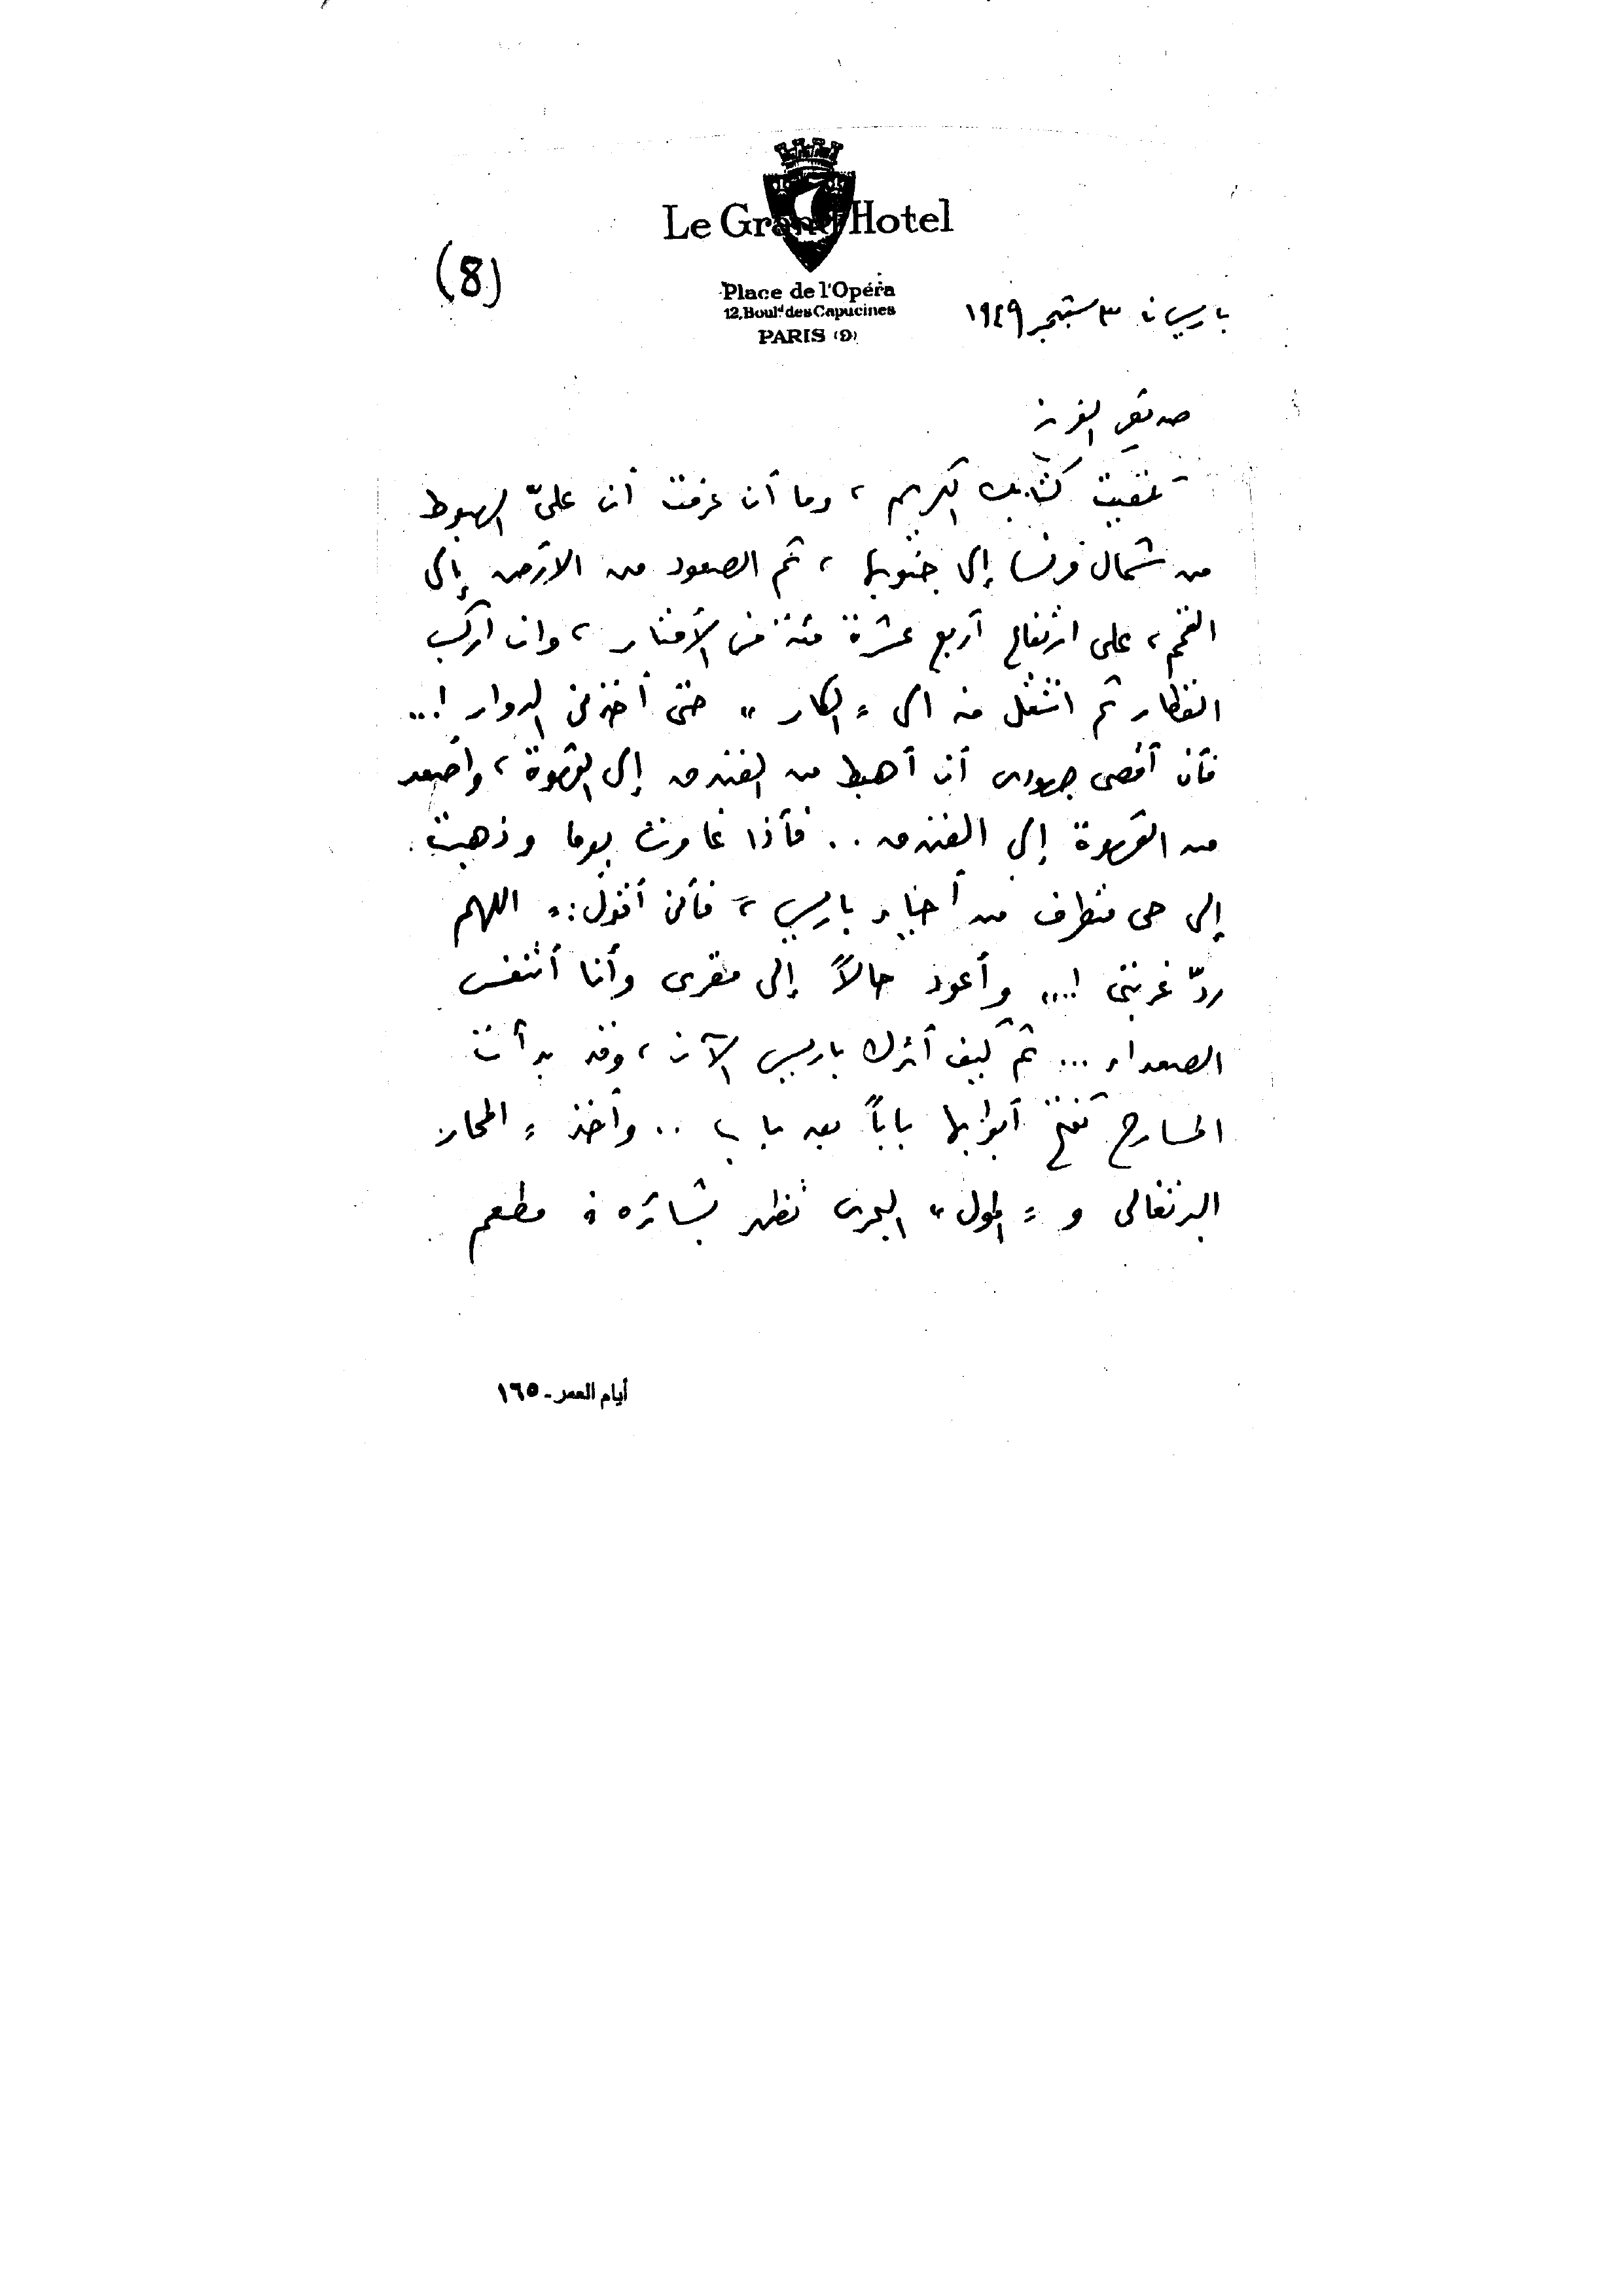 Le Grand Hotel
(8)
Place de l'Opéra
12, Boulᵈ des Capucines
PARIS (9)
باريس في ٣ سبتمبر ١٩٤٩
صديقي العزيز
تلقيت كتابك الكريم، وما أن عرفت أن علىّ الهبوط
من شمال فرنسا إلى جنوبها، ثم الصعود من الأرض إلى
القمم، على ارتفاع أربع عشرة مئة من الأمتار، وان أركب
القطار ثم انتقل منه الى "الكار" حتى أخذني الدوار !...
فأن أقصى جهودى أن أهبط من الفندق إلى القهوة، وأصعد
من القهوة إلى الفندق .. فأذا غامرت يوما وذهبت
إلى حى متطرف من أحياء باريس، فأنى أقول: "اللهم
ردّ غربتى !..." وأعود حالاً إلى مقرى وأنا أتنفس
الصعداء ... ثم كيف أترك باريس الآن، وقد بدأت
المسارح تفتح أبوابها باباً بعد باب .. وأخذ "المحار
البرتغالى و "المول" البحرى تظهر بشائره في مطعم
أيام العمر - ١٦٥